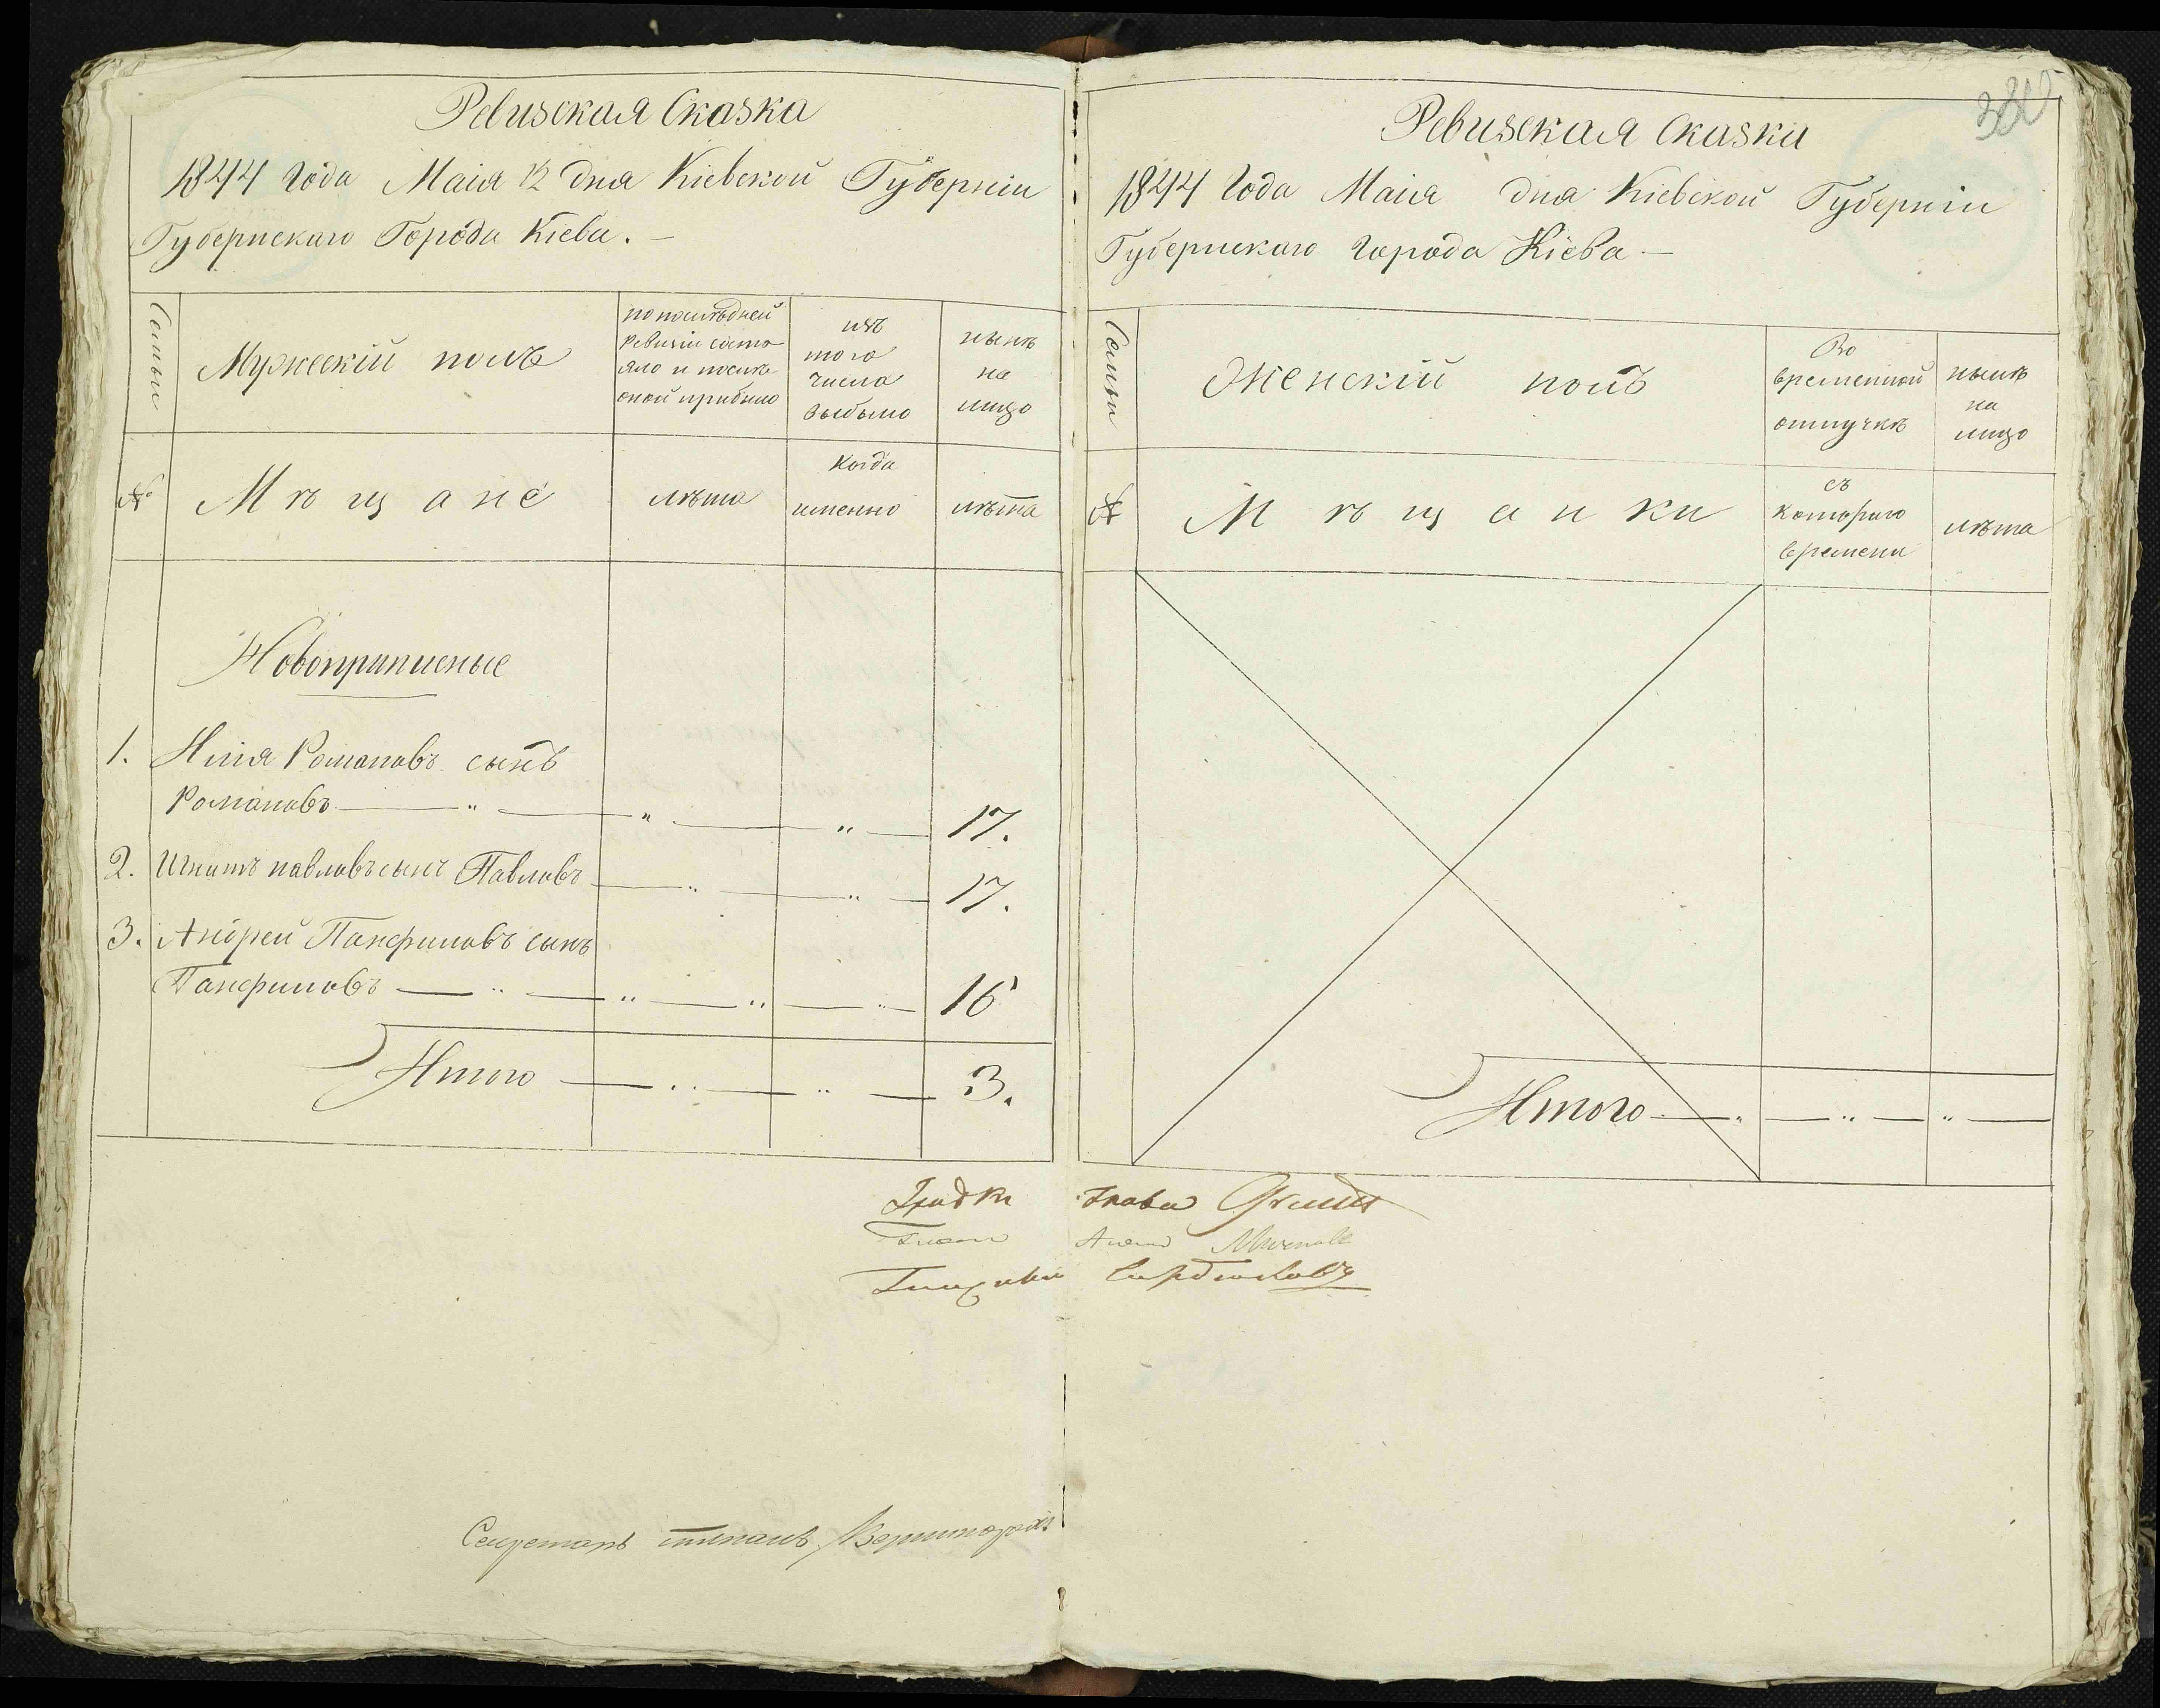 Ревизская Сказка
1844 года Маія 12 дня Кіевской Губерніи
Губернскаго Города Кіева. —
Семьи
Мужескій полъ
по последней
Ревизіи состо
яло и после
оной прибыло
изъ
того
числа
выбыло
ныне
на
лицо
№
Мѣщане
лѣта
когда
именно
лѣта
Новоприписные
1. Илія Романовъ сынъ
Романовъ — " — " — " — 17.
2. Игнатъ павловъ сынъ Павловъ — " — " — 17.
3. Андрей Панфиловъ сынъ
Панфиловъ — " — " — " — " — 16
Итого — " — " — 3.
Секретарь
380
Ревизская Сказка
1844 Года Маія дня Кіевской Губерніи
Губернскаго города Кіева —
Семьи
Женскій полъ
Во
временной
отлучкѣ
нынѣ
на
лицо
№
Мѣщанки
съ
котораго
времени
лѣта
Итого — " — " — " —
Градск. Глава